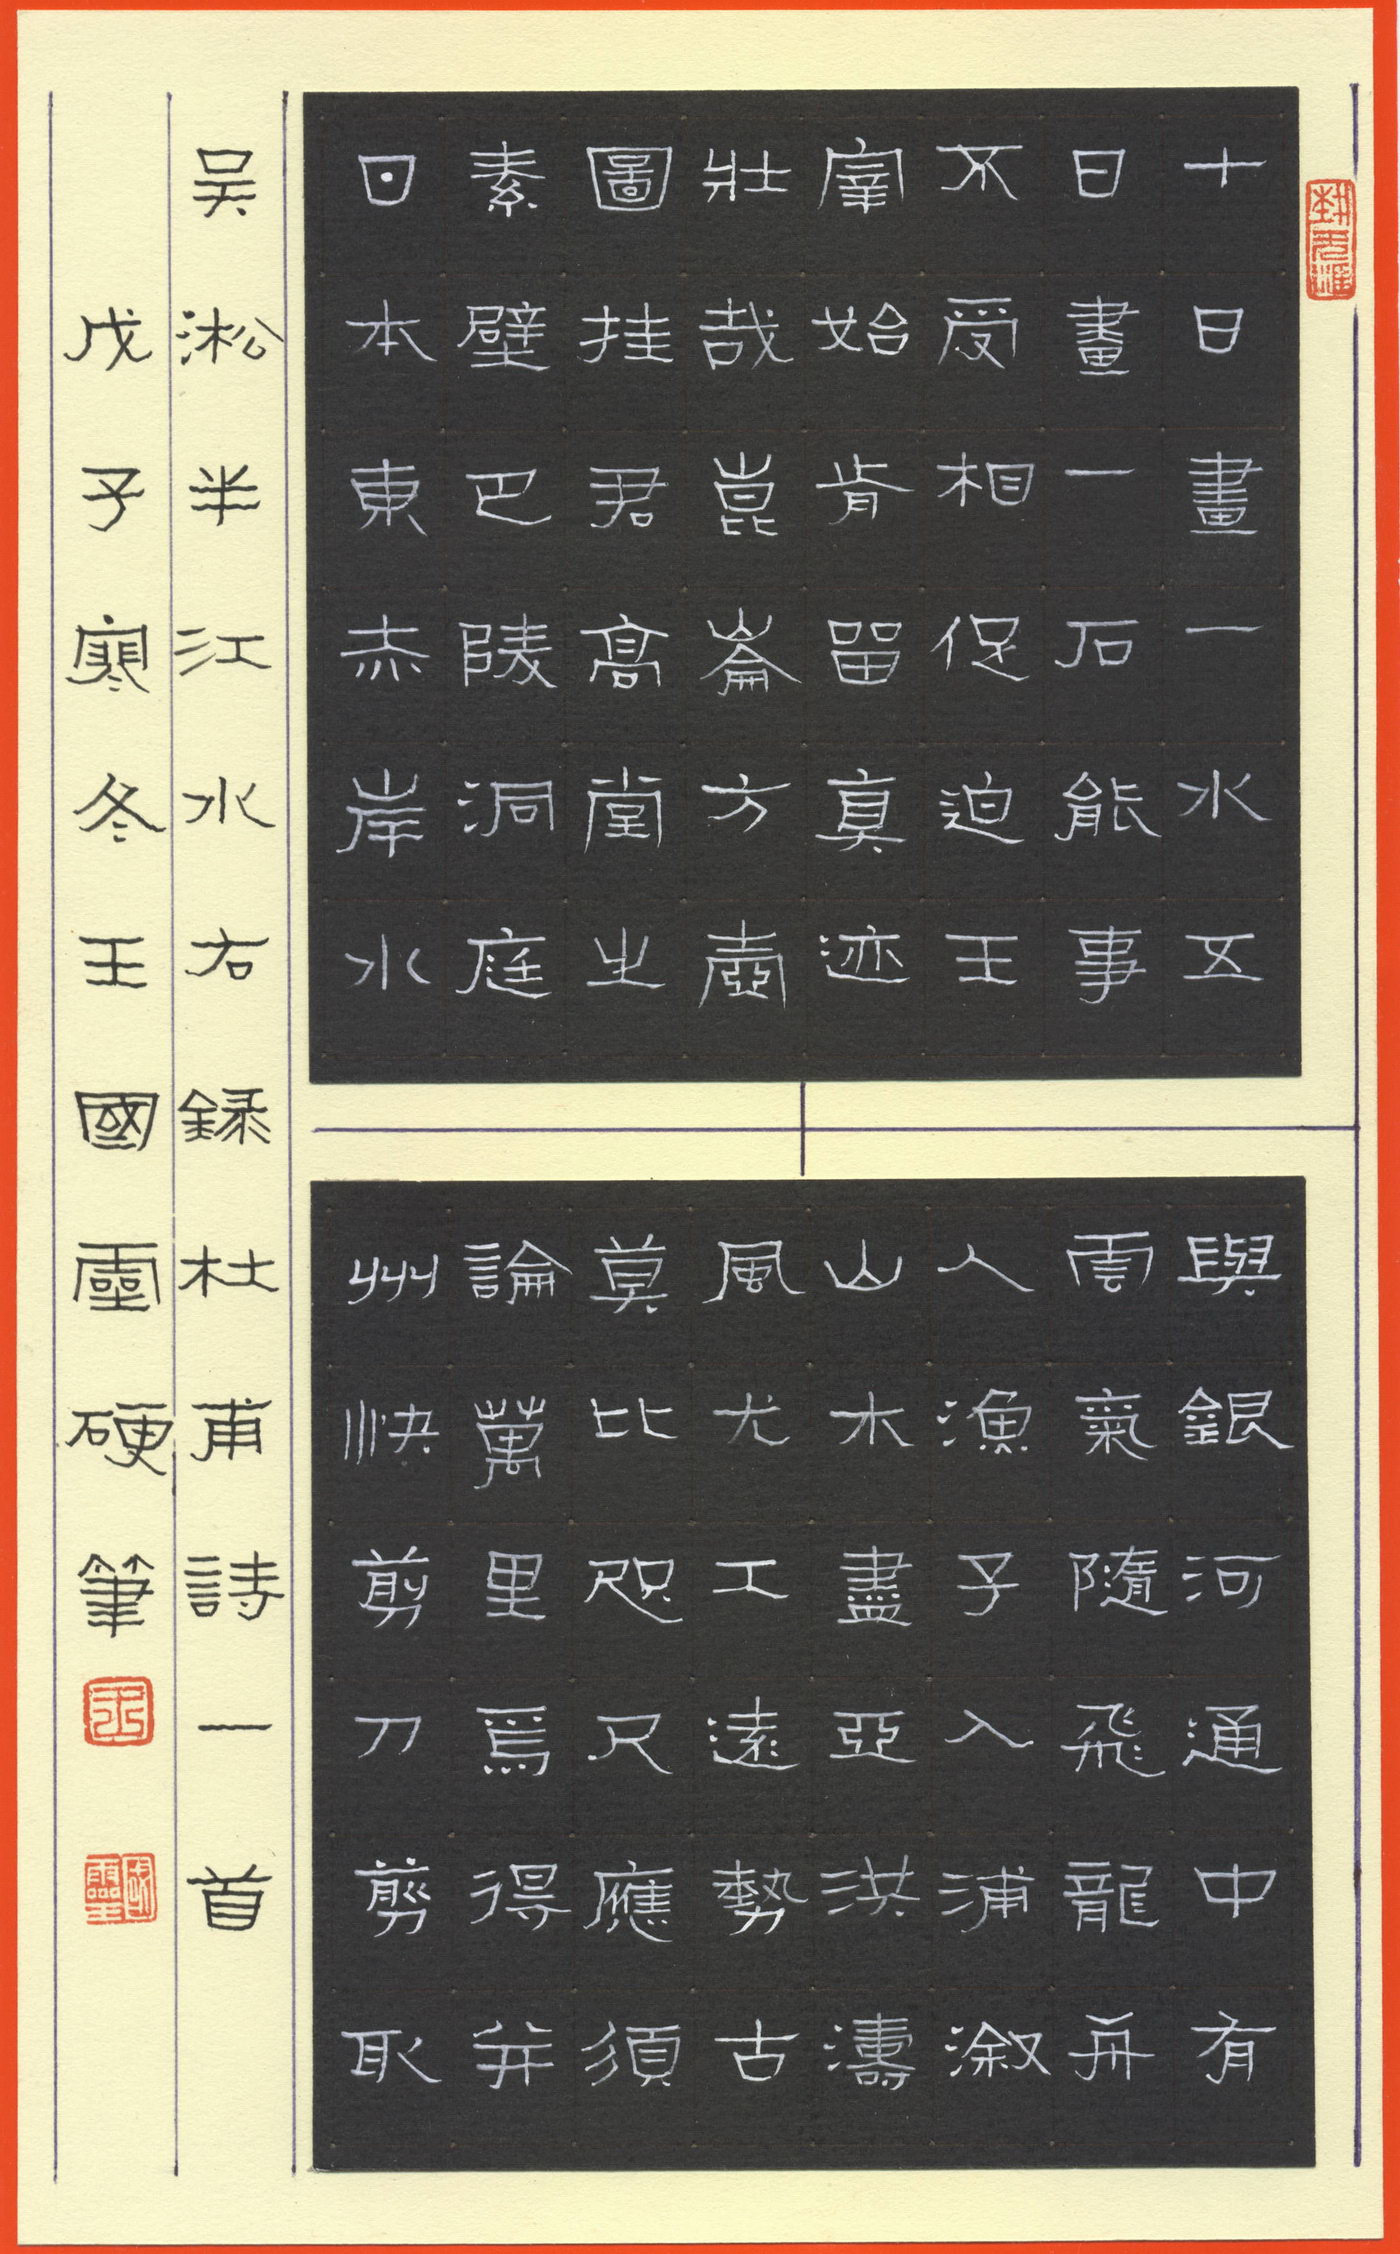 十日畫一水五
日畫一石能事
不受相促迫王
宰始肯留真迹
壯哉崑崙方壺
圖挂君高堂之
素壁巴陵洞庭
日本東赤岸水
與銀河通中有
雲氣隨飛龍舟
人漁子入浦溆
山木盡亞洪濤
風尤工遠勢古
莫比咫尺應須
論萬里焉得并
州快剪刀剪取
吴淞半江水右録杜甫詩一首
戊子寒冬王國靈硬筆
王
國靈